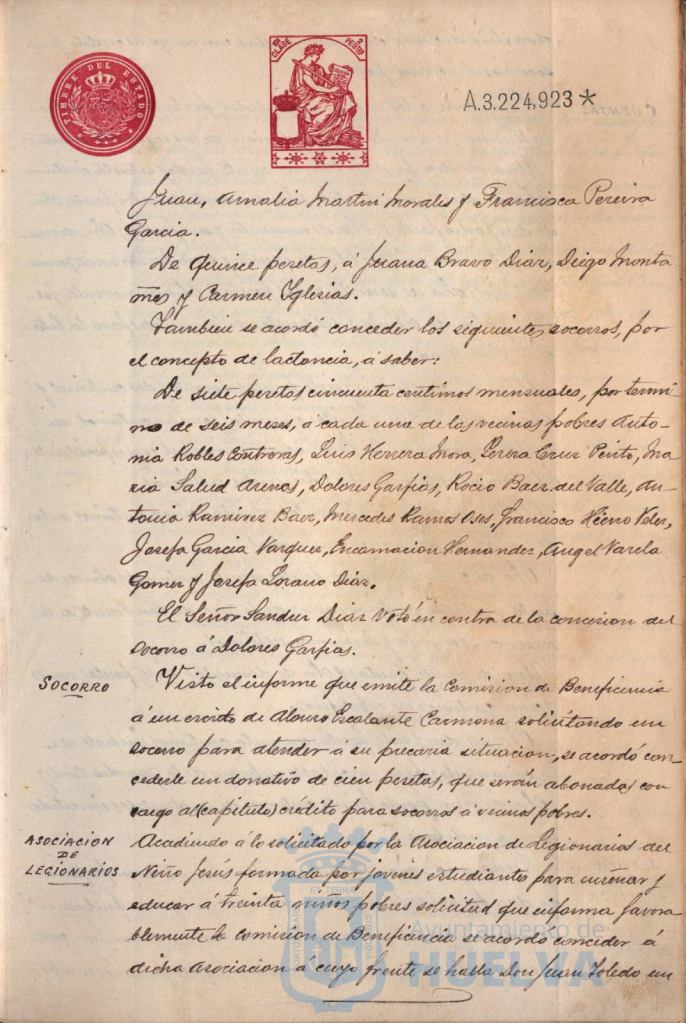 TIMBRE DEL ESTADO
CLASE
PESETAS 2
A.3.224,923*
Juan, Amalia Martin Morales y Francisca Pereira
Garcia.
De quince pesetas, á Juana Bravo Diaz, Diego Monta
ñes y Carmen Yglesias.
Tambien se acordó conceder los siguientes socorros, por
el concepto de lactancia, á saber:
De siete pesetas cincuenta centimos mensuales, por termi-
no de seis meses, á cada una de las vecinas pobres Anto-
nia Robles Contreras, Luis Herrera Mora, Cruz Pinto, Ma
ria Salud Arenas, Dolores Garfias, Rocio Baez del Valle, An
tonia Ramirez Baez, Mercedes Ramos Oses, Francisco
Josefa Garcia Vazquez, Encarnacion Hernandez, Angel Varela
Gomez y Josefa Lozano Diaz.
El Señor Diaz votó en contra de la concesion del
socorro á Dolores Garfias.
SOCORRO
Visto el informe que emite la Comision de Beneficencia
á un escrito de Alonso Escalante Carmona solicitando un
socorro para atender á su precaria situacion, se acordó con-
cederle un donativo de cien pesetas, que serán abonadas con
cargo al (capitulo) crédito para socorros á vecinos pobres.
ASOCIACION
DE
LEGIONARIOS
Accediendo á lo solicitado por la Asociacion de Legionarios del
Niño Jesús formada por jovenes estudiantes para enseñar y
educar á treinta niños pobres solicitud que informa favora
blemente la Comision de Beneficencia se acordó conceder á
dicha Asociacion á cuyo frente se halla Don Juan Toledo un
Ayuntamiento de
HUELVA